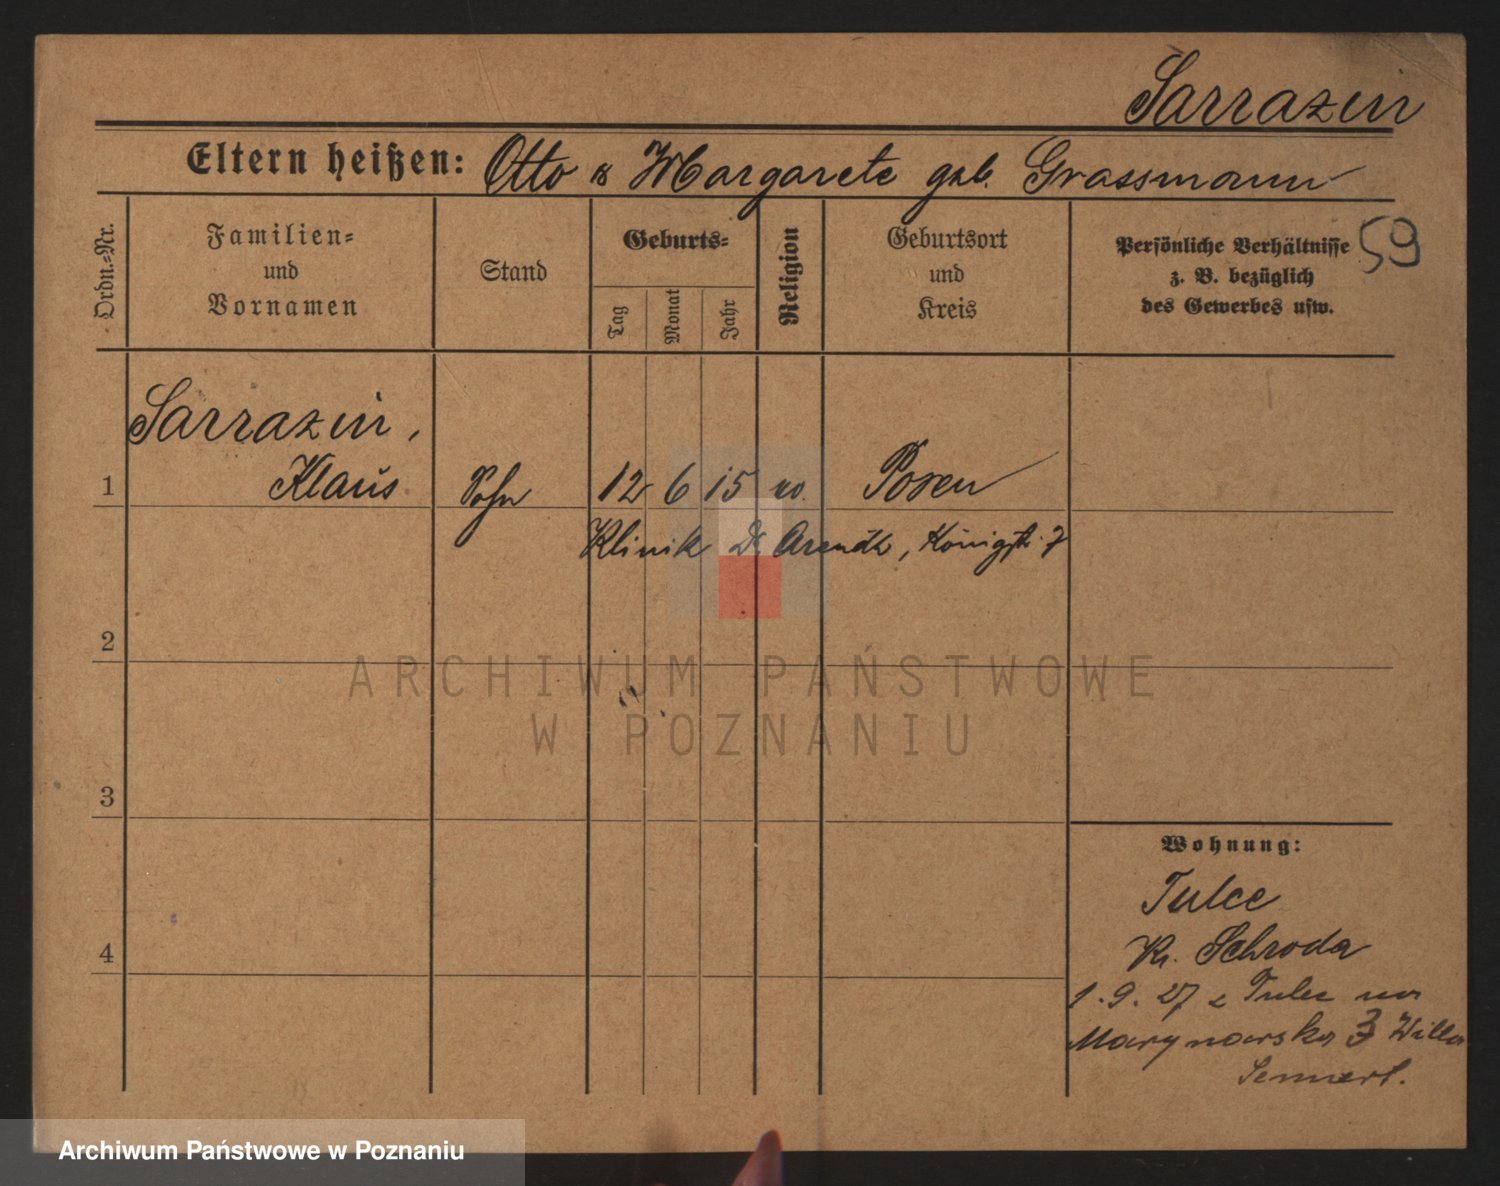 Sarrazin
Eltern heißen: Otto & Margarete geb. Grassmann
Ordn.=Nr.
Familien=
und
Vornamen
Stand
Geburts=
Tag
Monat
Jahr
Religion
Geburtsort
und
Kreis
Persönliche Verhältnisse
z. B. bezüglich
des Gewerbes usw.
59
Sarrazin,
1 Klaus Sohn 12 6 15 ev. Posen
Klinik Dr Arendt, Königstr. 7
2
ARCHIWUM PAŃSTWOWE
W POZNANIU
3
Wohnung:
Tulce
4
Kr. Schroda
1.9.27 z Tulec na
Marynarska 3 Willa
Archiwum Państwowe w Poznaniu